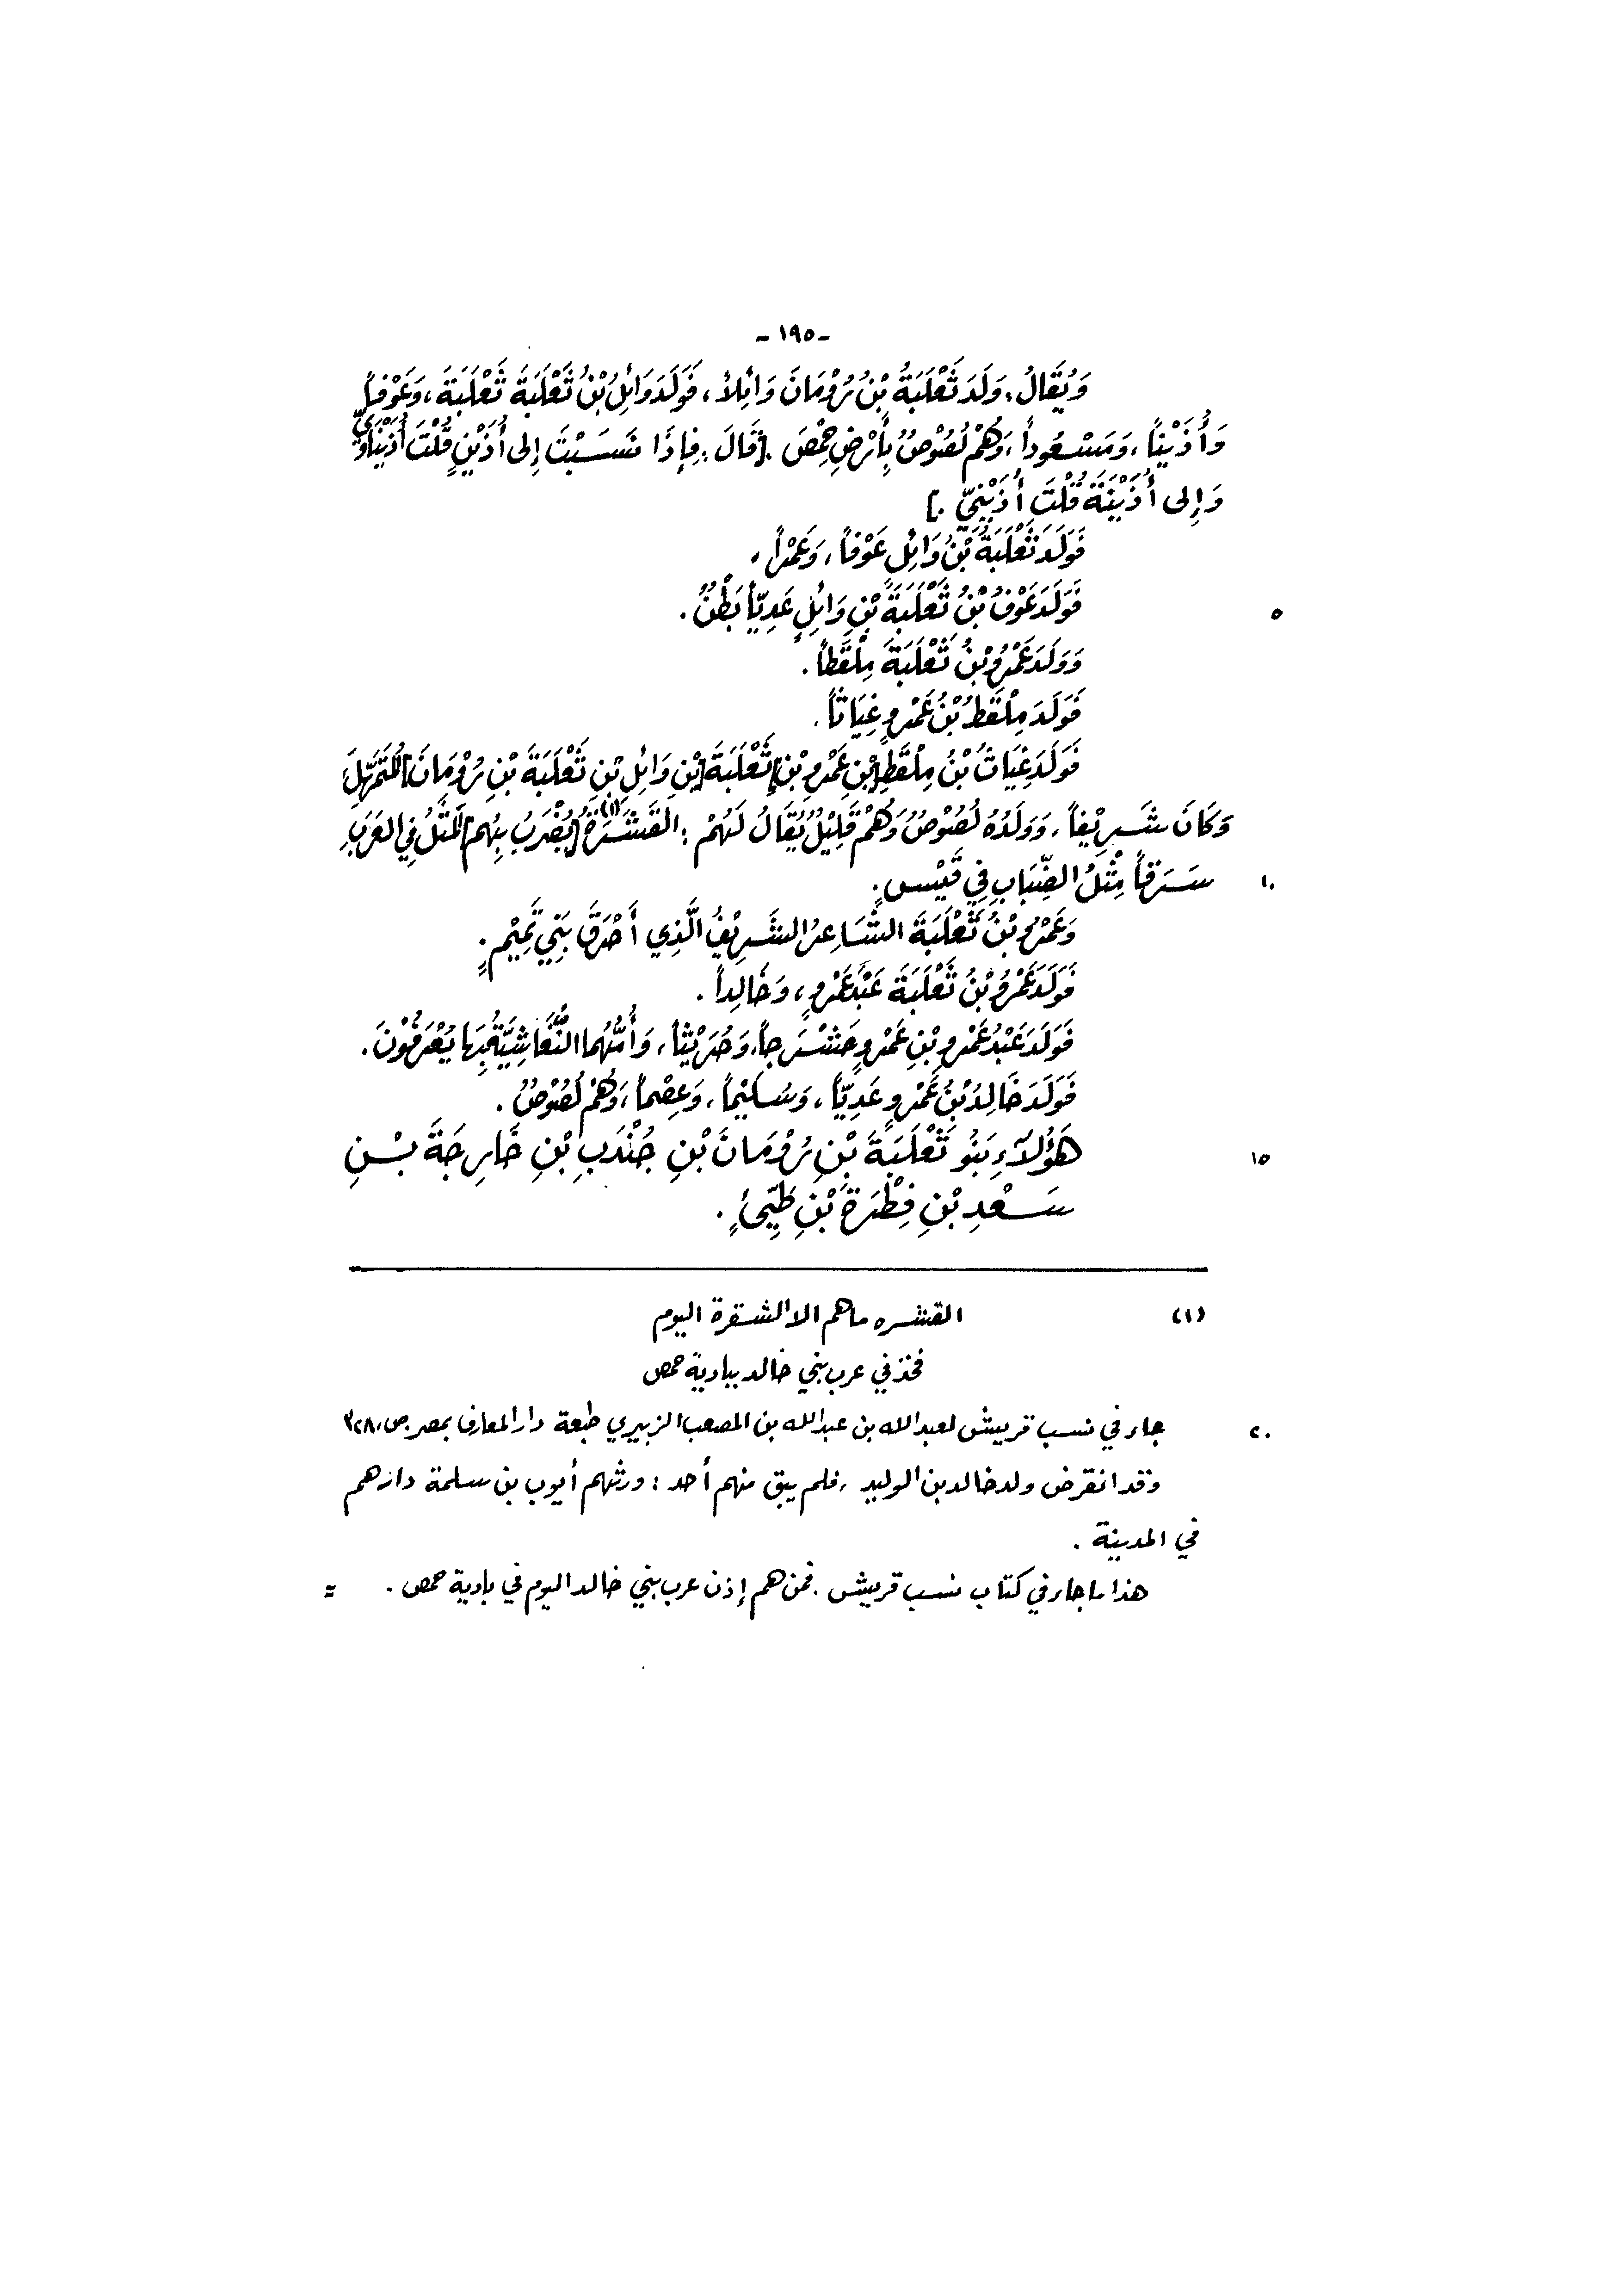 -١٩٥-
وَيُقَالُ: وَلَدَ ثَعْلَبَةُ بْنُ رُوْمَانَ وَائِلاً، فَوَلَدَ وَائِلُ بْنُ ثَعْلَبَةَ ثَعْلَبَةَ، وَعَوْفاً،
وَأُذَيْناً، وَمَسْعُوداً، وَهُمْ لُصُوْصٌ بِأَرْضِ حِمْصَ. [قَالَ: فَإِذَا نَسَبْتَ إِلى أُذَيْنٍ قُلْتَ أُذَيْنَاوِيٌّ
وَإِلى أُذَيْنَةَ قُلْتَ أُذَيْنِيّ.]
فَوَلَدَ ثَعْلَبَةُ بْنُ وَائِلٍ عَوْفاً، وَعَمْراً،
فَوَلَدَ عَوْفُ بْنُ ثَعْلَبَةَ بْنِ وَائِلٍ عَدِيّاً بَطْنٌ. ٥
وَوَلَدَ عَمْرُو بْنُ ثَعْلَبَةَ مِلْقَطاً.
فَوَلَدَ مِلْقَطُ بْنُ عَمْرٍو غِيَاثاً.
فَوَلَدَ غِيَاثُ بْنُ مِلْقَطِ [بْنِ عَمْرِو بْنِ] ثَعْلَبَةَ [بْنِ وَائِلِ بْنِ ثَعْلَبَةَ بْنِ رُوْمَانَ] المُتَمَهِّلَ،
وَكَانَ شَرِيْفاً، وَوَلَدُهُ لُصُوْصٌ وَهُمْ قَلِيْلٌ يُقَالُ لَهُمْ: القَشَرَةُ(١) [يُضْرَبُ بِهُم] المَثَلُ فِي العَرَبِ
سَرَقاً مِثْلُ الضِّبَابِ فِي قَيْسٍ. ١٠
وَعَمْرُو بْنُ ثَعْلَبَةَ الشَّاعِرُ الشَّرِيْفُ الَّذِي أَحْرَقَ بَنِي تَمِيْمٍ.
فَوَلَدَ عَمْرُو بْنُ ثَعْلَبَةَ عَبْدَ عَمْرٍو، وَخَالِداً.
فَوَلَدَ عَبْدُ عَمْرِو بْنِ عَمْرٍو حَشْرَجاً، وَحُرَيْثاً، وَأُمُّهُما النُّعَاشِيَّةُ بِهَا يُعْرَفُوْنَ.
فَوَلَدَ خَالِدُ بْنُ عَمْرٍو عَدِيّاً، وَسُلَيْماً، وَعِصْماً، وَهُمْ لُصُوْصٌ.
هَؤُلاَءِ بَنُو ثَعْلَبَةَ بْنِ رُوْمَانَ بْنِ جُنْدَبِ بْنِ خَارِجَةَ بْنِ ١٥
سَعْدِ بْنِ فِطْرَةَ بْنِ طَيِّئٍ.
(١) القشره ما هم الا الشقرة اليوم
فخذ في عرب بني خالد ببادية حمص
جاء في نسب قريش لعبدالله بن عبدالله بن المصعب الزبيري طبعة دار المعارف بمصر ص، ٣٢٨ ٢٠
وقد انقرض ولد خالد بن الوليد، فلم يبق منهم أحد: ورثهم أيوب بن سلمة دارهم
في المدينة.
هذا ما جاء في كتاب نسب قريش. فمن هم إذن عرب بني خالد اليوم في بادية حمص. =